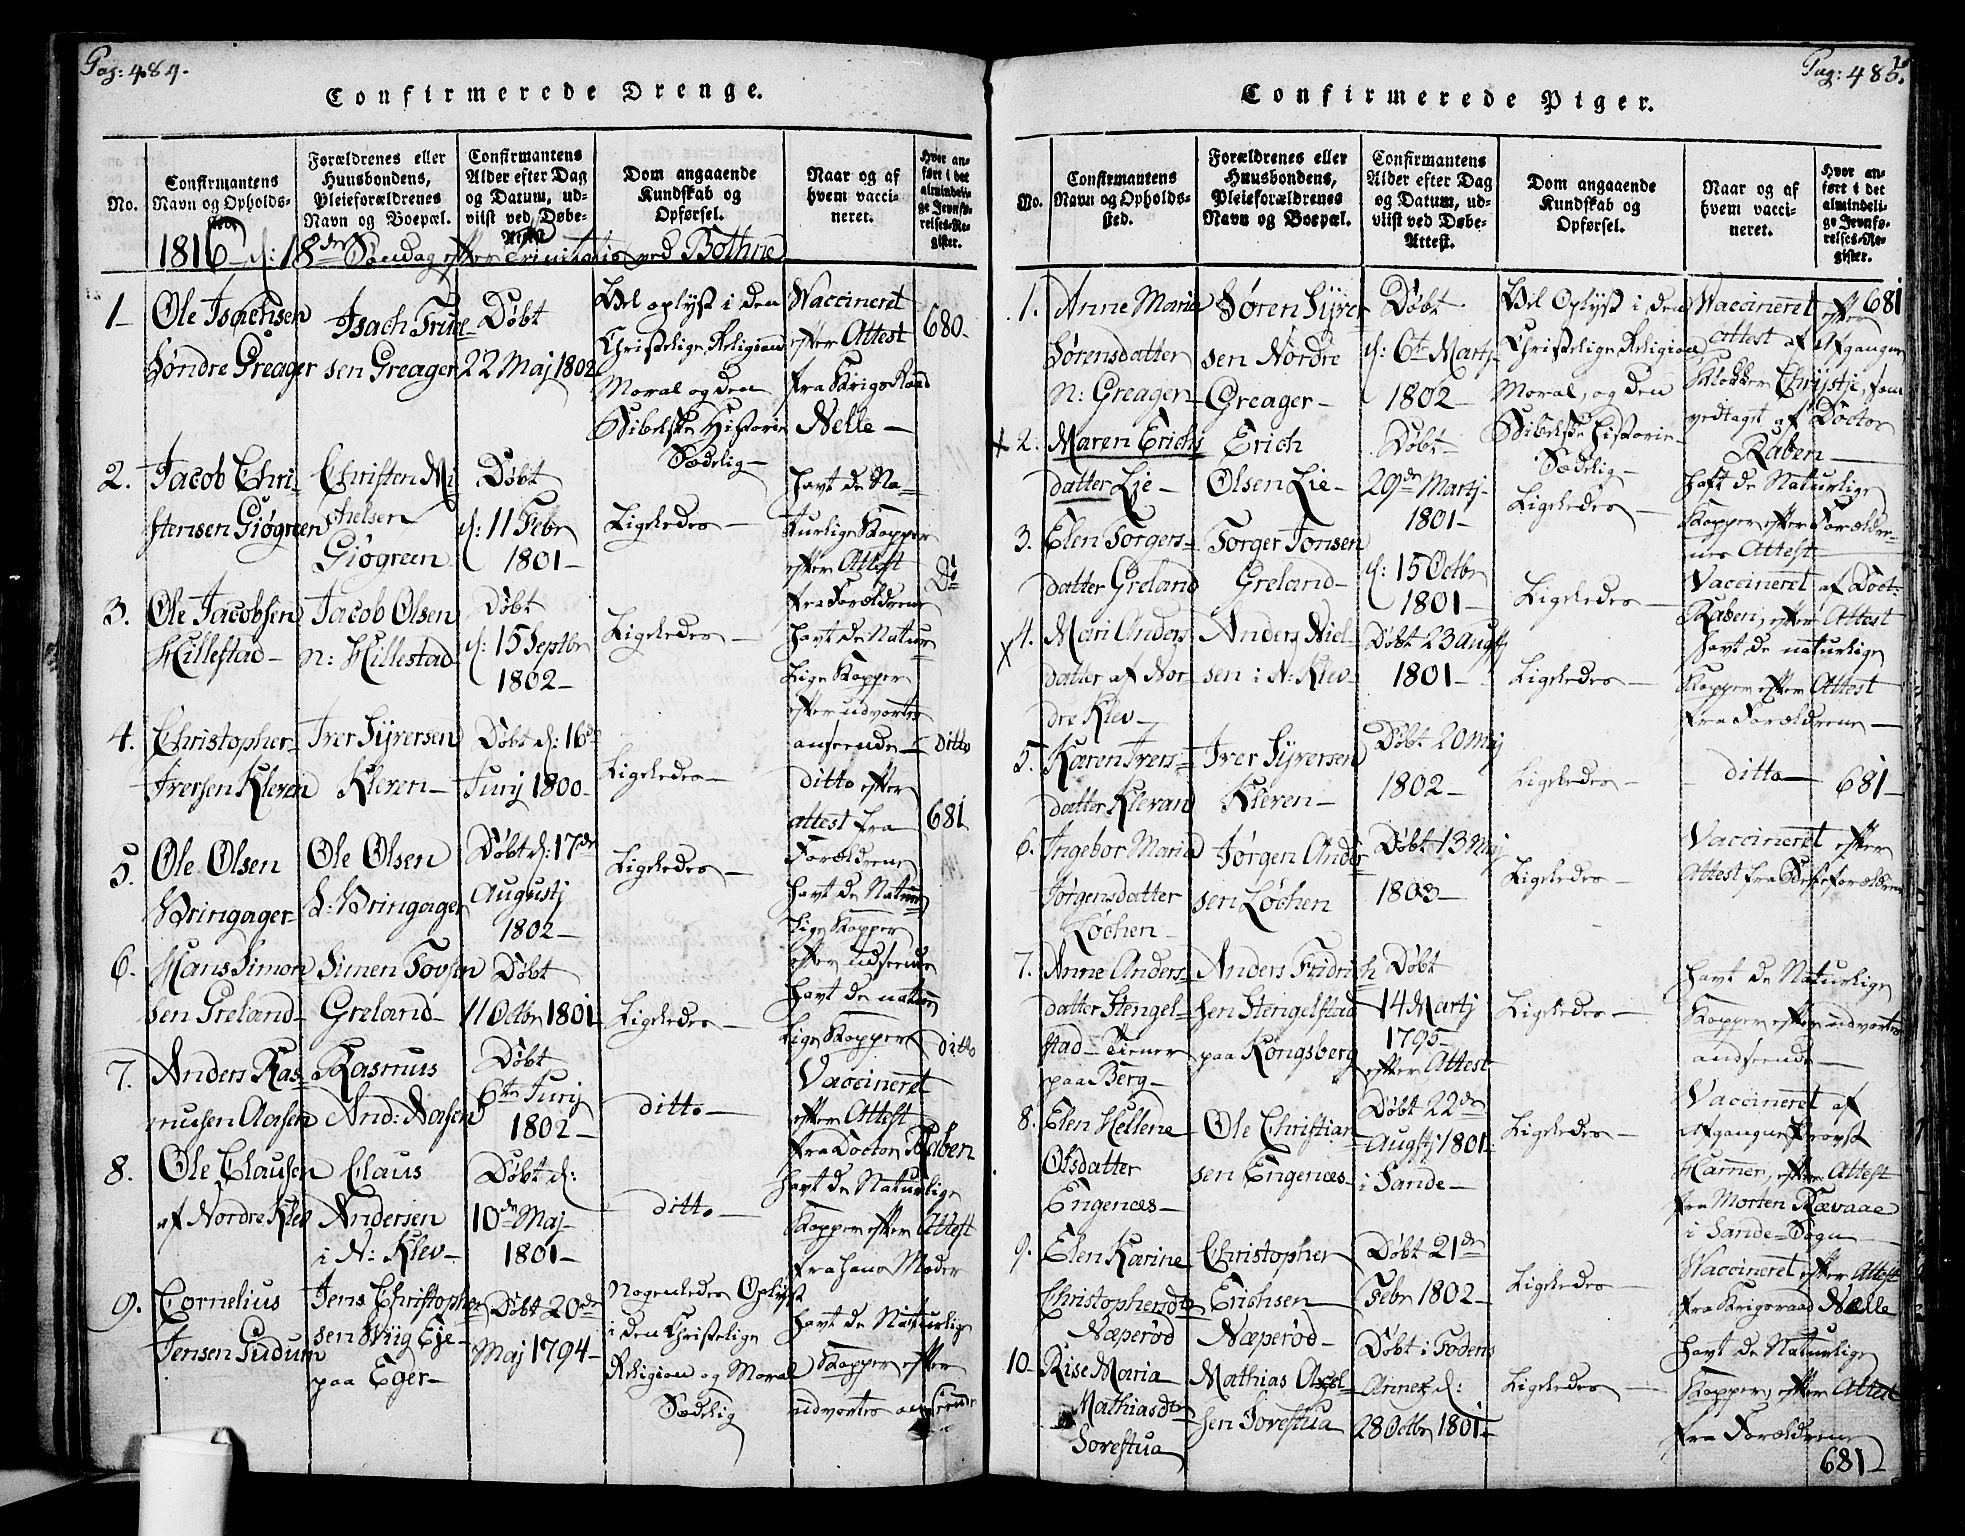 Pag: 484.
Confirmerede Drenge.
No.
Confirmantens
Navn og Opholds-
sted.
Forældrenes eller
Huusbondens,
Pleieforældrenes
Navn og Boepæl.
Confirmantens
Alder efter Dag
og Datum, ud-
viist ved Døbe-
Attest.
Dom angaaende
Kundskab og
Opførsel.
Naar og af
hvem vacci-
neret.
Hvor an-
ført i det
almindeli-
ge Jevnfø-
relses-Re-
gister.
1816 d: 18de Søndag efter Trinitatis ved Bothne
1
Ole Isachsen
Søndre Greager
Isach True
sen Greager
Døbt
22 Maj 1802
Vel oplyst i den
Christelige Religion
Moral og den
Bibelske Historie
Sædelig
Vaccineret
efter Attest
fra Krigs Raad
Nelle
680
2.
Jacob Chri-
stensen Giøgreen
Christen Mi
chelsen
Giøgreen
Døbt
d: 11 Febr
1801
Ligeledes
havt de Na-
turlige Kopper
efter Attest
fra Forældrene
Do
3.
Ole Jacobsen
Hillestad
Jacob Olsen
n: Hillestad
Døbt
d: 15 Septbr
1802
Ligeledes
havt de Natur
lige Kopper
efter udvortes
anseende
4.
Christopher
Iversen Kleven
Iver Syversen
Kleven
Døbt d: 16de
Junj 1800
Ligeledes
ditto efter
attest fra
Forældrene
ditto
681
5.
Ole Olsen
Bringager
Ole Olsen
L: Bringager
Døbt d: 17de
Augustj
1802
Ligeledes
havt de Natur
lige Kopper
efter udseende
6.
Hans Simon
sen Greland
Simen Tovsen
Greland
Døbt
11 Octbr 1801
Ligeledes
havt de natur
lige Kopper
ditto
7.
Anders Ras
musen Aasen
Rasmus
And: Aasen
Døbt
6te Junj
1802
ditto
Vaccineret
efter Attest
fra Doctor Raben
8.
Ole Clausen
af Nordre Klev
Claus
Andersen
i N: Klev
Døbt d:
10de Maj
1801
ditto
havt de Naturlige
Kopper efter Attest
fra hans Moder
9.
Cornelius
Jensen Gudum
Jens Christopher
sen Wiig Eje
paa Eger
Døbt 20de
Maj 1794
Nogenledes Oplyst
i den Christelige
Religion og Moral
Sædelig
havt de Naturlige
Kopper efter
udvortes anseende
Pag: 485.
Confirmerede Piger.
No.
Confirmantens
Navn og Opholds-
sted.
Forældrenes eller
Huusbondens,
Pleieforældrenes
Navn og Boepæl.
Confirmantens
Alder efter Dag
og Datum, ud-
viist ved Døbe-
Attest.
Dom angaaende
Kundskab og
Opførsel.
Naar og af
hvem vacci-
neret.
Hvor an-
ført i det
almindeli-
ge Jevnfø-
relses-Re-
gister.
1.
Anne Maria
Sørensdatter
n: Greager
Søren Syver
sen Nordre
Greager
Døbt
d: 6te Martj
1802
Vel Oplyst i den
Christelige Religion
Moral, og den
Bibelske Historie
Sædelig
Vaccineret efter
Attest af Afgangne
Klokker Chrystie, som
vedtaget af Doctor
Raben
681
x 2.
Maren Erichs
datter Lie
Erich
Olsen Lie
Døbt
29de Martj
1801
Ligeledes
haft de Naturlige
Kopper efter Forældre-
nes Attest
3.
Elen Torgers-
datter Greland
Torger Jonsen
Greland
d: 15 Octbr
1801
Ligeledes
Vaccineret af Doct:
Raben, efter Attest
x 4.
Mari Anders
datter af Nor-
dre Klev
Anders Niel
sen i N: Klev
Døbt 23 Augstj
1801
Ligeledes
havt de naturlige
Kopper efter Attest
fra Forældrene
5.
Karen Ivers-
datter Klevan
Iver Syversen
Kleven
Døbt 20 Maj
1802
Ligeledes
ditto
681
6.
Ingebor Maria
Jørgensdatter
Løchen
Jørgen Anders
sen Løchen
Døbt 13 Maj
1803
Ligeledes
Vaccineret efter
Attest fra
7.
Anne Anders-
datter Stengel-
stad Tiener
paa Berg
Anders Fridrich
sen Stengelstad
paa Kongsberg
Døbt
14 Martj
1795
efter Attest
Ligeledes
havt de Naturlige
Kopper efter udvortes
andseende
8.
Elen Hellene
Olsdatter
Engenæs
Ole Christian
sen Engenæs
Døbt 22de
Augstj 1801
i Sande
Ligeledes
Vaccineret af
Afgangne Provst
Hamer, efter Attest
fra Morten Rævaae
i Sande Sogn
9.
Elen Karine
Christophersdtr
Næperød
Christopher
Erichsen
Næperød
Døbt 21de
Febr 1802
Ligeledes
Vaccineret efter Attest
fra Krigsraad Nelle
10
Rise Maria
Mathiasdtr
Sorestua
Mathias Axel-
sen Sorestua
Døbt i Fodens
Annex d:
28 Octbr 1801
Ligeledes
havt de Naturlige
Kopper, efter Attest
fra Forældrene
681